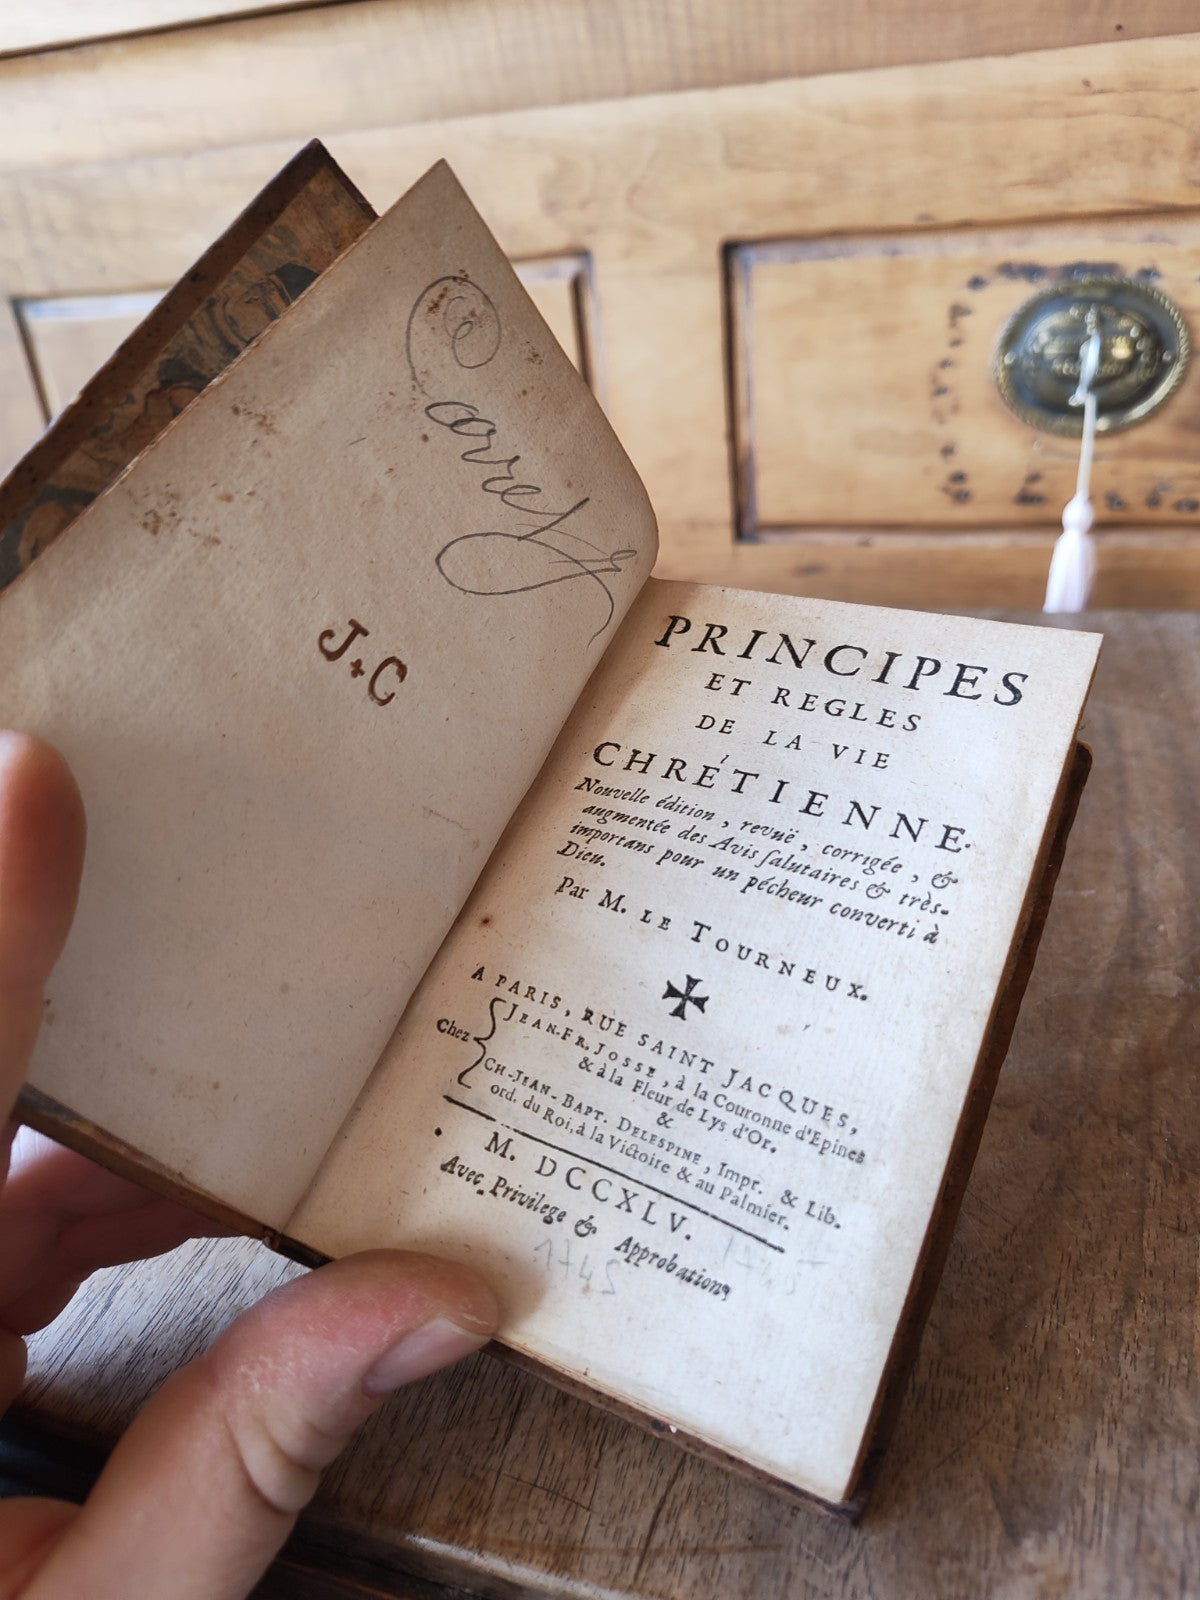 J+C
PRINCIPES
ET REGLES
DE LA VIE
CHRÉTIENNE.
Nouvelle édition, revuë, corrigée, &
augmentée des Avis ſalutaires & très-
importans pour un pécheur converti à
Dieu.
Par M. LE TOURNEUX.
A PARIS, RUE SAINT JACQUES,
Chez
JEAN-FR. JOSSE, à la Couronne d'Epines
& à la Fleur de Lys d'Or.
&
CH-JEAN-BAPT. DELESPINE, Impr. & Lib.
ord. du Roi, à la Victoire & au Palmier.
M. DCCXLV.
Avec Privilege & Approbation,
1745